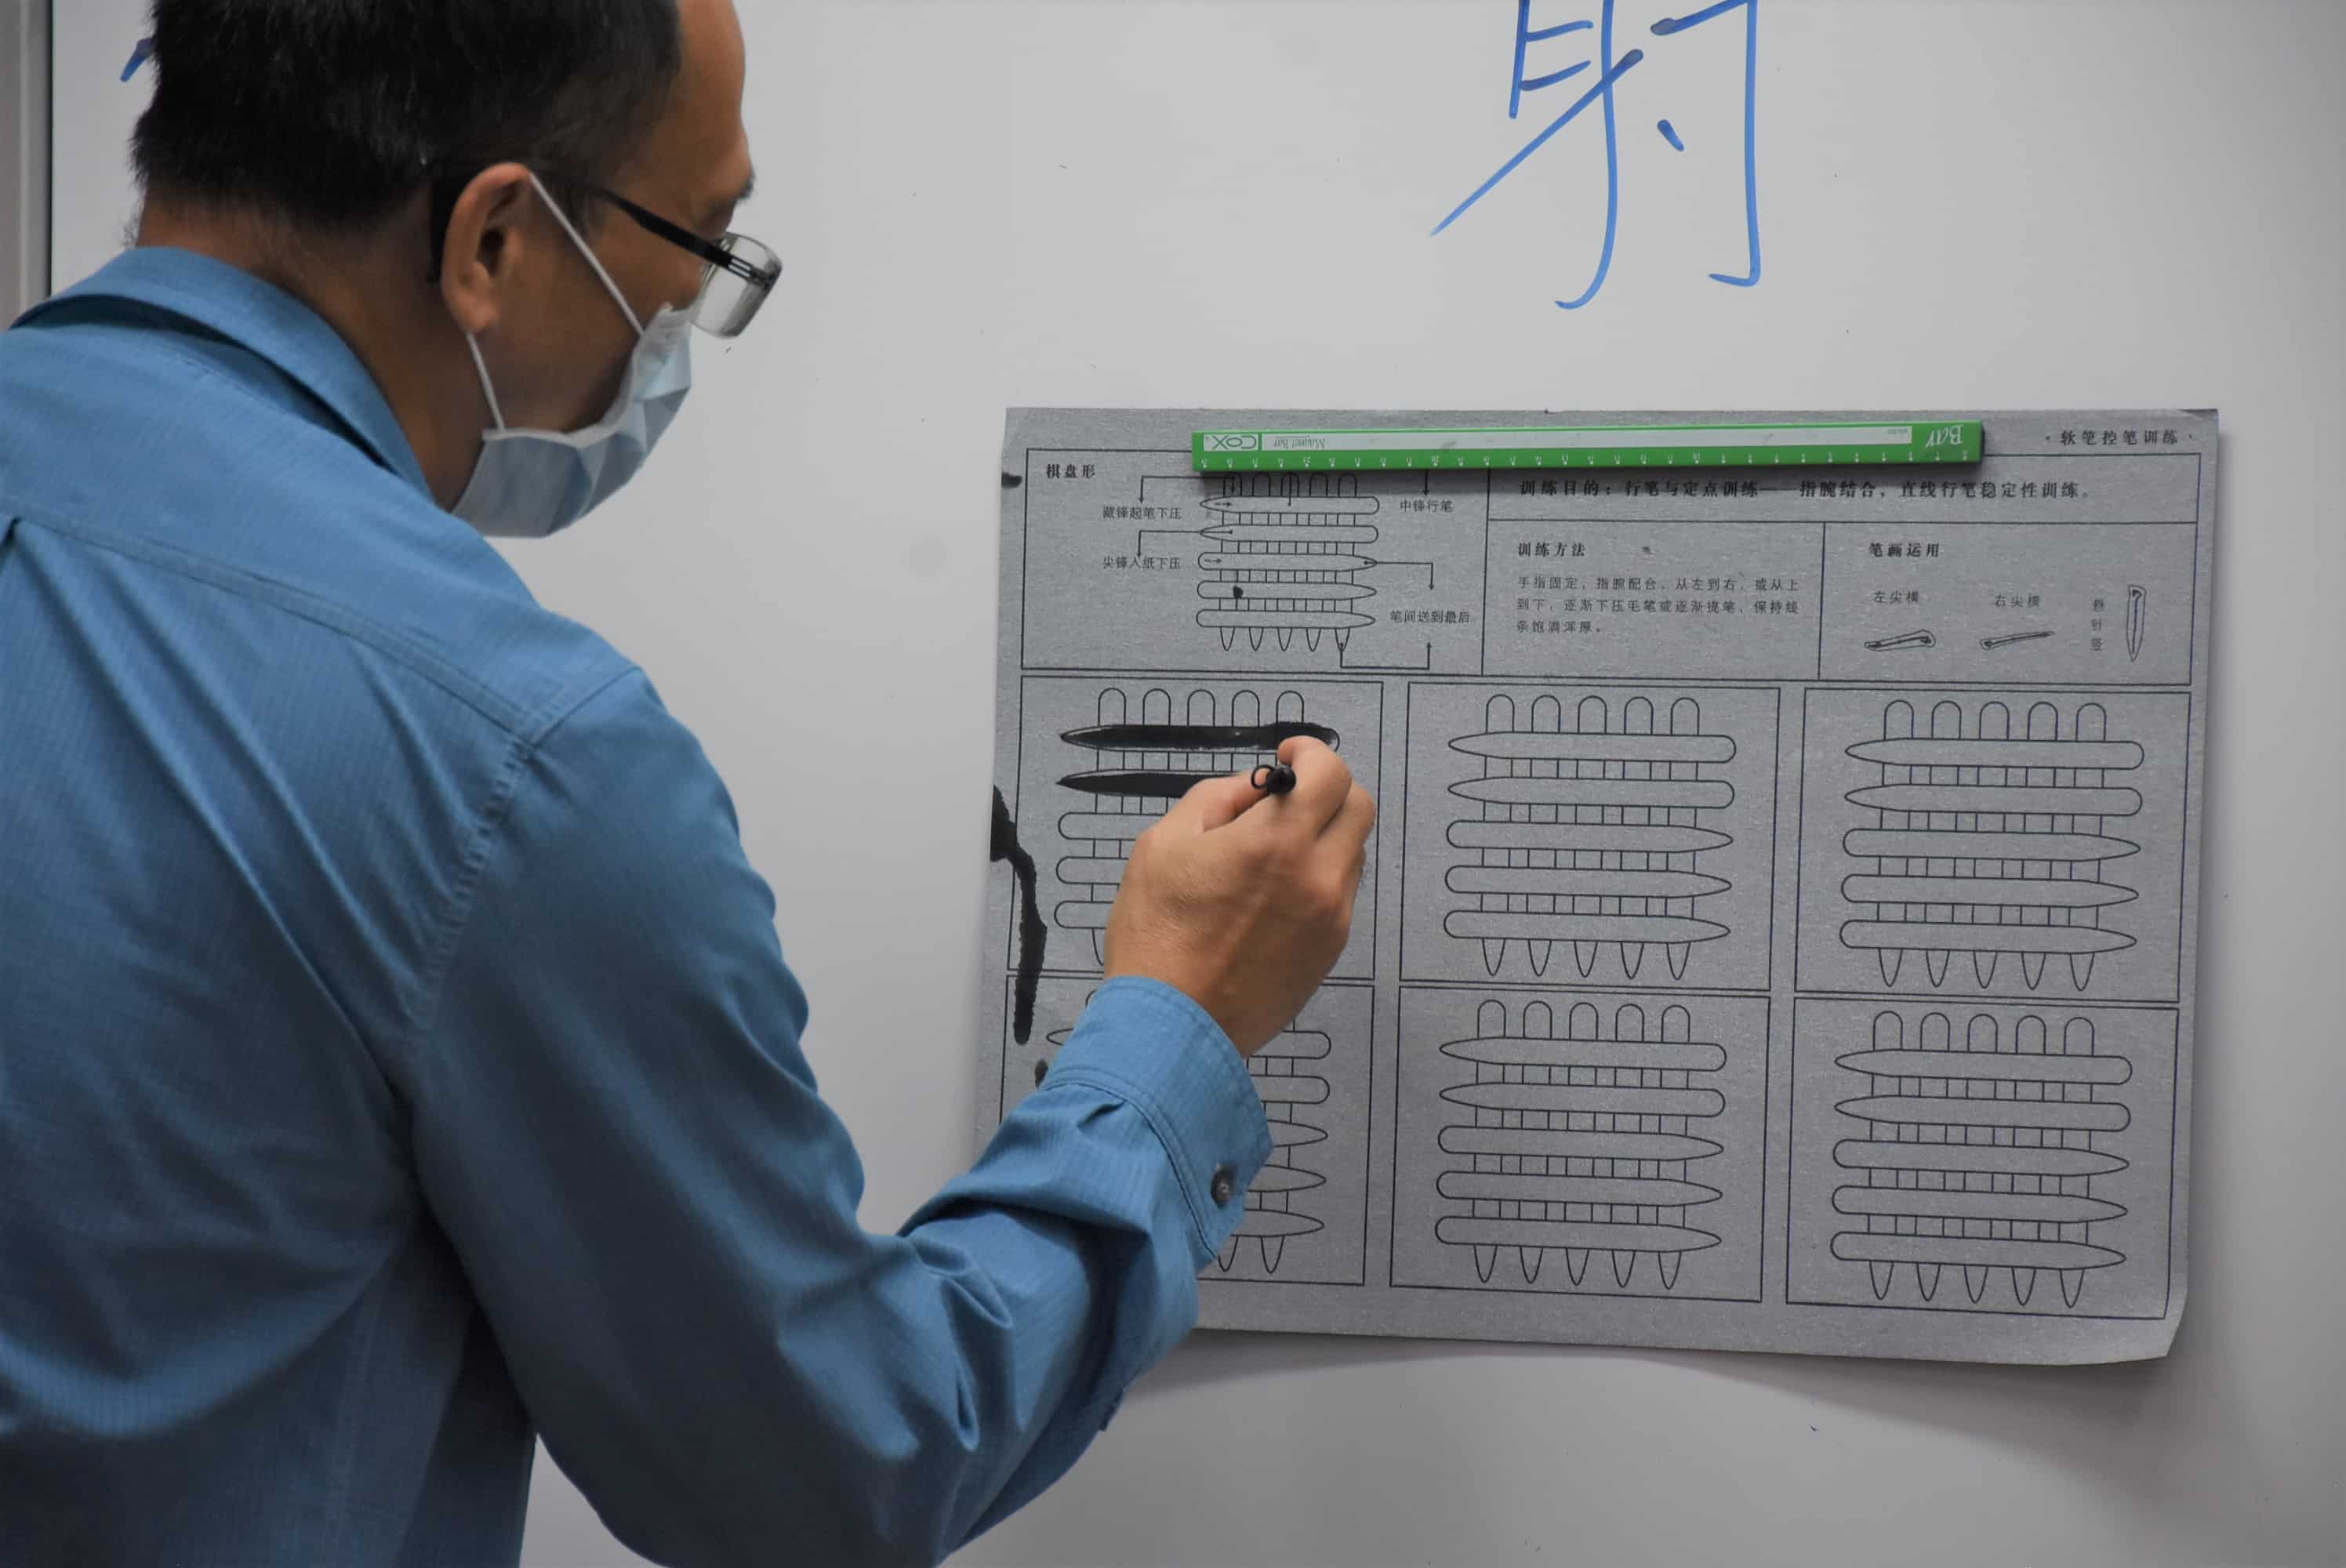 射
Bar
Magnet Bar
COX
·软笔控笔训练·
棋盘形
藏锋起笔下压
中锋行笔
尖锋入纸下压
笔间送到最后
训练目的：行笔与定点训练——指腕结合，直线行笔稳定性训练。
训练方法
手指固定，指腕配合，从左到右，或从上
到下，逐渐下压毛笔或逐渐提笔，保持线
条饱满浑厚。
笔画运用
左尖横
右尖横
悬针竖